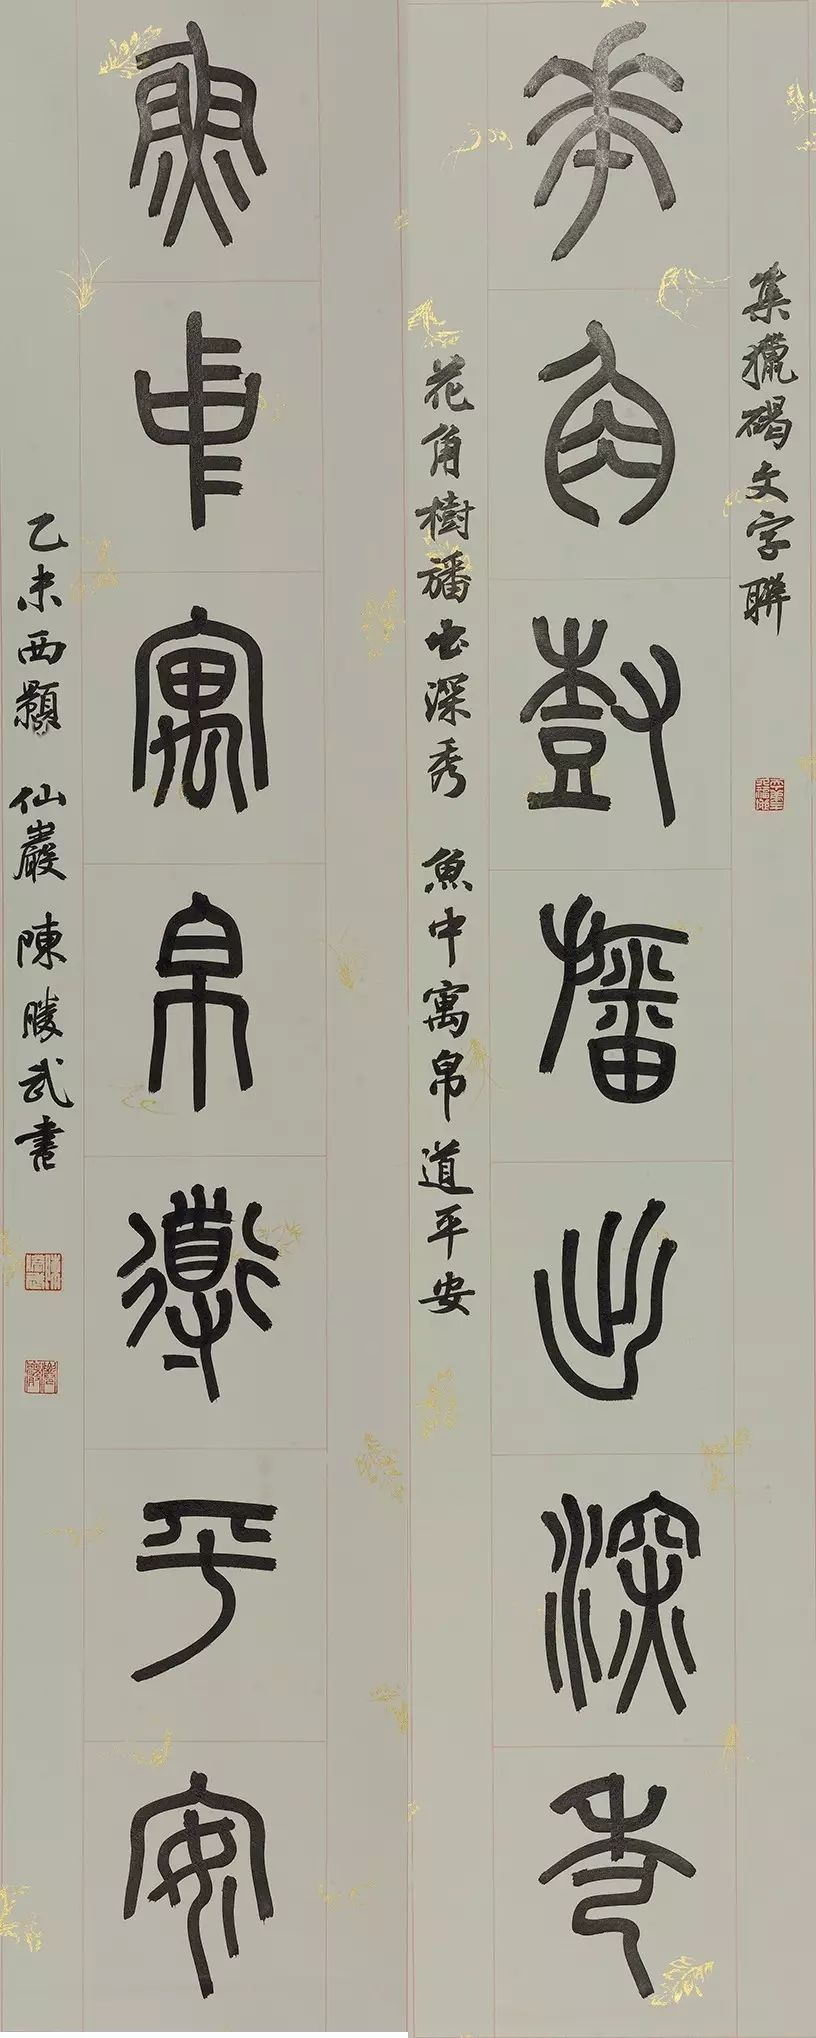 集獵碣文字聯
華角樹播出深秀
花角樹旛出深秀 魚中寓帛道平安
魚中寓帛導平安
乙未西顥 仙巖 陳勝武書